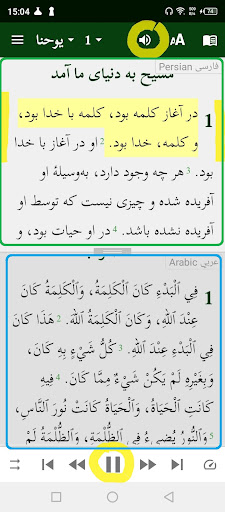 15:04
يوحنا 1 AA
مسیح به دنیای ما آمد
فارسی Persian
1 در آغاز کلمه بود، کلمه با خدا بود،
و کلمه، خدا بود. 2 او در آغاز با خدا
بود. 3 هر چه وجود دارد، به‌وسیلهٔ او
آفریده شده و چیزی نیست که توسط او
آفریده نشده باشد. 4 در او حیات بود، و
عربي Arabic
1 فِي ٱلْبَدْءِ كَانَ ٱلْكَلِمَةُ، وَٱلْكَلِمَةُ كَانَ
عِنْدَ ٱللهِ، وَكَانَ ٱلْكَلِمَةُ ٱللهَ. 2 هَذَا كَانَ
فِي ٱلْبَدْءِ عِنْدَ ٱللهِ. 3 كُلُّ شَيْءٍ بِهِ كَانَ،
وَبِغَيْرِهِ لَمْ يَكُنْ شَيْءٌ مِمَّا كَانَ. 4 فِيهِ
كَانَتِ ٱلْحَيَاةُ، وَٱلْحَيَاةُ كَانَتْ نُورَ ٱلنَّاسِ،
5 وَٱلنُّورُ يُضِيءُ فِي ٱلظُّلْمَةِ، وَٱلظُّلْمَةُ لَمْ